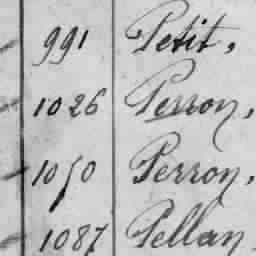 991 Petit,
1026 Perron,
1050 Perron,
1087 Pellan